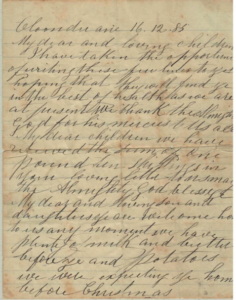 16 12 85
My dear and loving children
I have taken the opportunity
of writing those few lines to you
hoping that they will find you
in the best of health as we are
at present we thank the Almighty
God for his mercies to us all
My Dear children we have
received the sum of one
Pound ten
your loving letter
the Almighty God bless you
My dear and
are welcome home
to us any moment we have
plenty of milk and
before us and potatoes
we were expecting you home
before Christmas